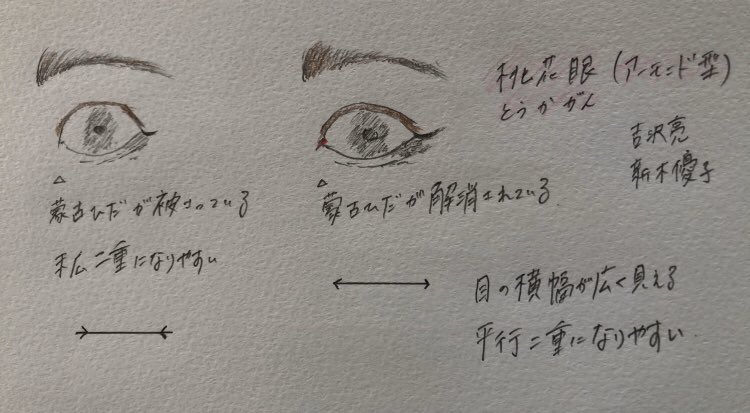 桃花眼(アーモンド型)
とうかがん
吉沢亮
新木優子
△
蒙古ひだが被さっている
末広二重になりやすい
△
蒙古ひだが解消されている
目の横幅が広く見える
平行二重になりやすい.